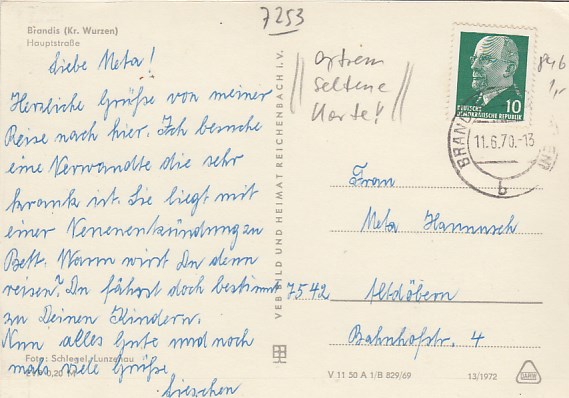 7253
Brandis (Kr. Wurzen)
Hauptstraße
Liebe Meta!
Herzliche Grüße von meiner
Reise nach hier. Ich besuche
eine Verwandte die sehr
krank ist. Sie liegt mit
einer Venenentzündung zu
Bett. Wann wirst Du denn
reisen? Du fährst doch bestimmt
zu Deinen Kindern.
Nun alles Gute und noch
mals viele Grüße
Lieschen
Foto: Schlegel, Lunzenau
EVP 0,20 M
VEB BILD UND HEIMAT REICHENBACH I. V.
extrem
seltene
Karte!!
DEUTSCHE
DEMOKRATISCHE REPUBLIK
10
BRAND
11.6.70.-13
b
Frau
Meta Hannusch
7542 Altdöbern
Bahnhofstr. 4
V 11 50 A 1/B 829/69
13/1972